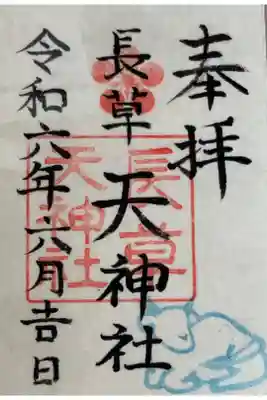 奉拝
長草天神社
令和六年六月吉日
長草
天神社